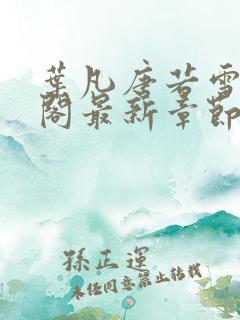 葉凡唐若雪
閣最新章節
孫正運
未任同意禁止转载